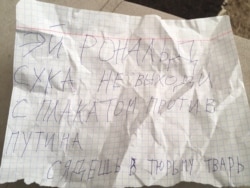 ЭЙ РОНАЛЬД
СУКА НЕ ВЫХОДИ
С ПЛАКАТОМ ПРОТИВ
ПУТИНА
СЯДЕШЬ В ТЮРЬМУ ТВАРЬ